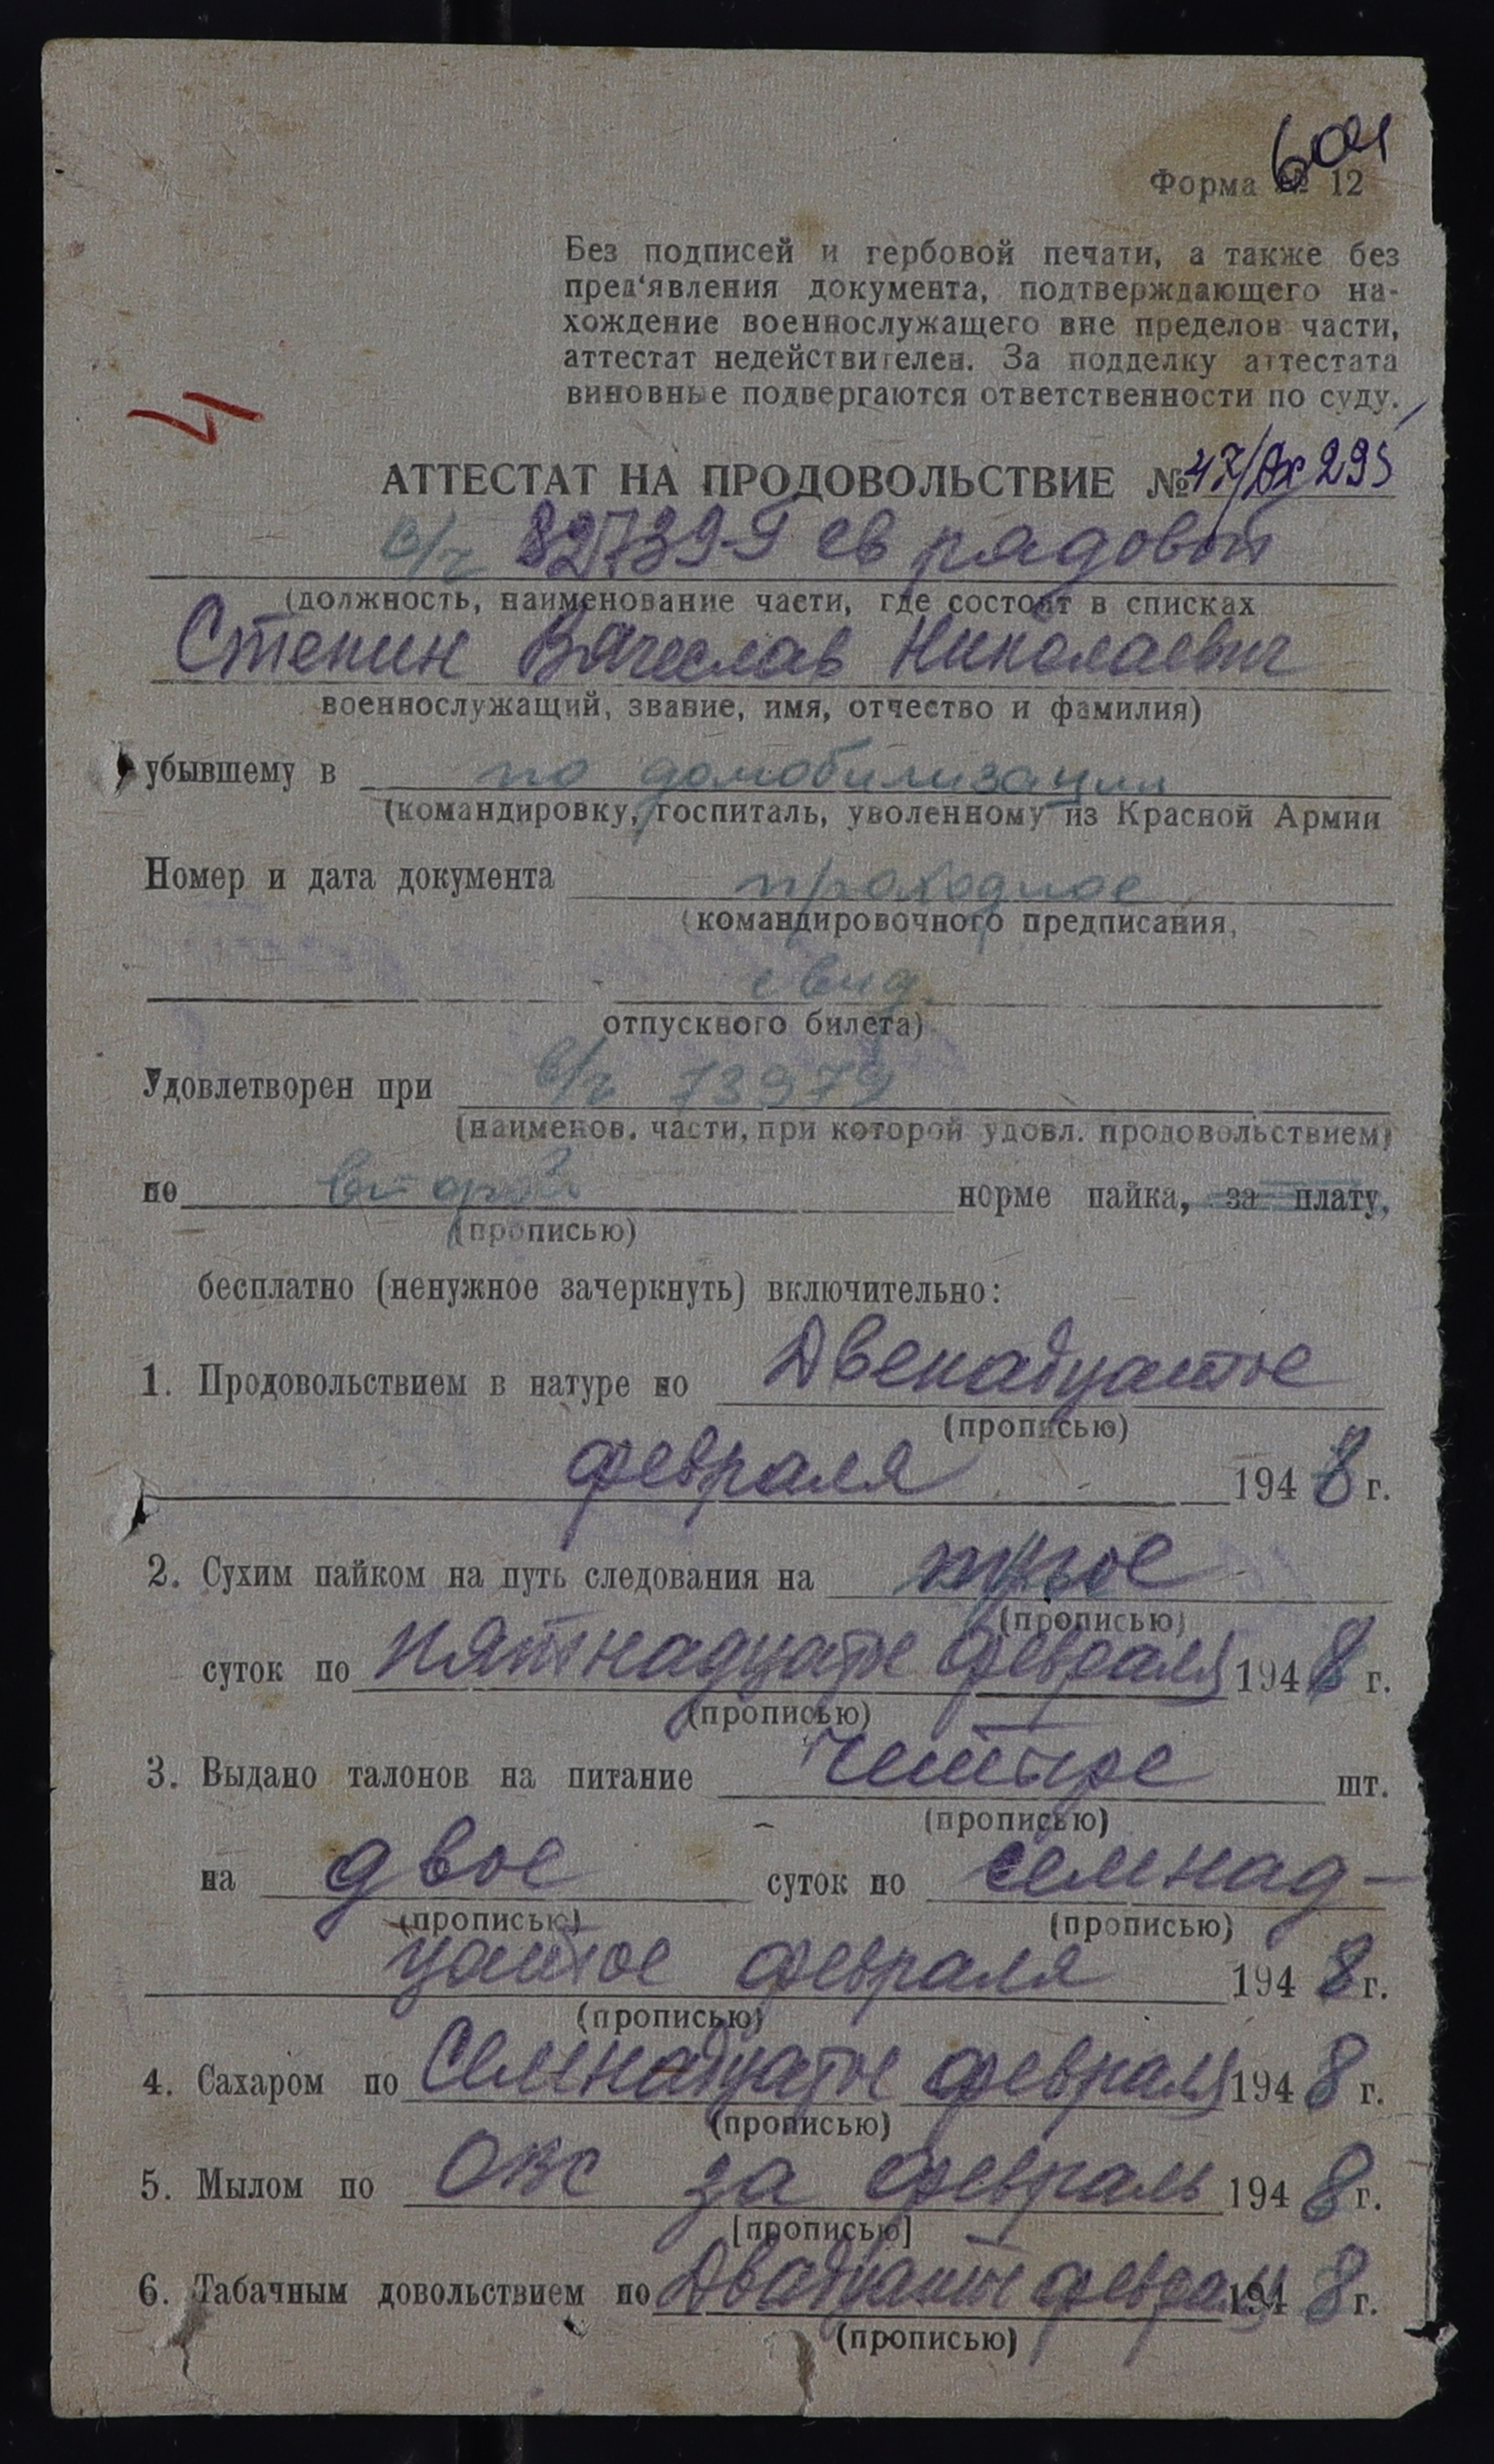 604
Форма № 12
Без подписей и гербовой печати, а также без
пред‘явления документа, подтверждающего на-
хождение военнослужащего вне пределов части,
аттестат недействителен. За подделку аттестата
виновные подвергаются ответственности по суду.
АТТЕСТАТ НА ПРОДОВОЛЬСТВИЕ № 295
в/ч 82739-9 рядовой
(должность, наименование части, где состоит в списках
Степин Вячеслав Николаевич
военнослужащий, звание, имя, отчество и фамилия)
убывшему в по домобилизации
(командировку, госпиталь, уволенному из Красной Армии
Номер и дата документа проходное
(командировочного предписания,
свид.
отпускного билета)
Удовлетворен при в/ч 73979
(наименов. части, при которой удовл. продовольствием)
по второй норме пайка, за плату,
(прописью)
бесплатно (ненужное зачеркнуть) включительно:
1. Продовольствием в натуре по Двенадцатое
(прописью)
февраля 1948 г.
2. Сухим пайком на путь следования на трое
(прописью)
суток по пятнадцатое февраля 1948 г.
(прописью)
3. Выдано талонов на питание четыре шт.
(прописью)
на двое суток по семнад-
(прописью) (прописью)
цатое февраля 1948 г.
(прописью)
4. Сахаром по Семнадцатое февраля 1948 г.
(прописью)
5. Мылом по ОВС за февраль 1948 г.
[прописью]
6. Табачным довольствием по Двадцатое февраля 1948 г.
(прописью)